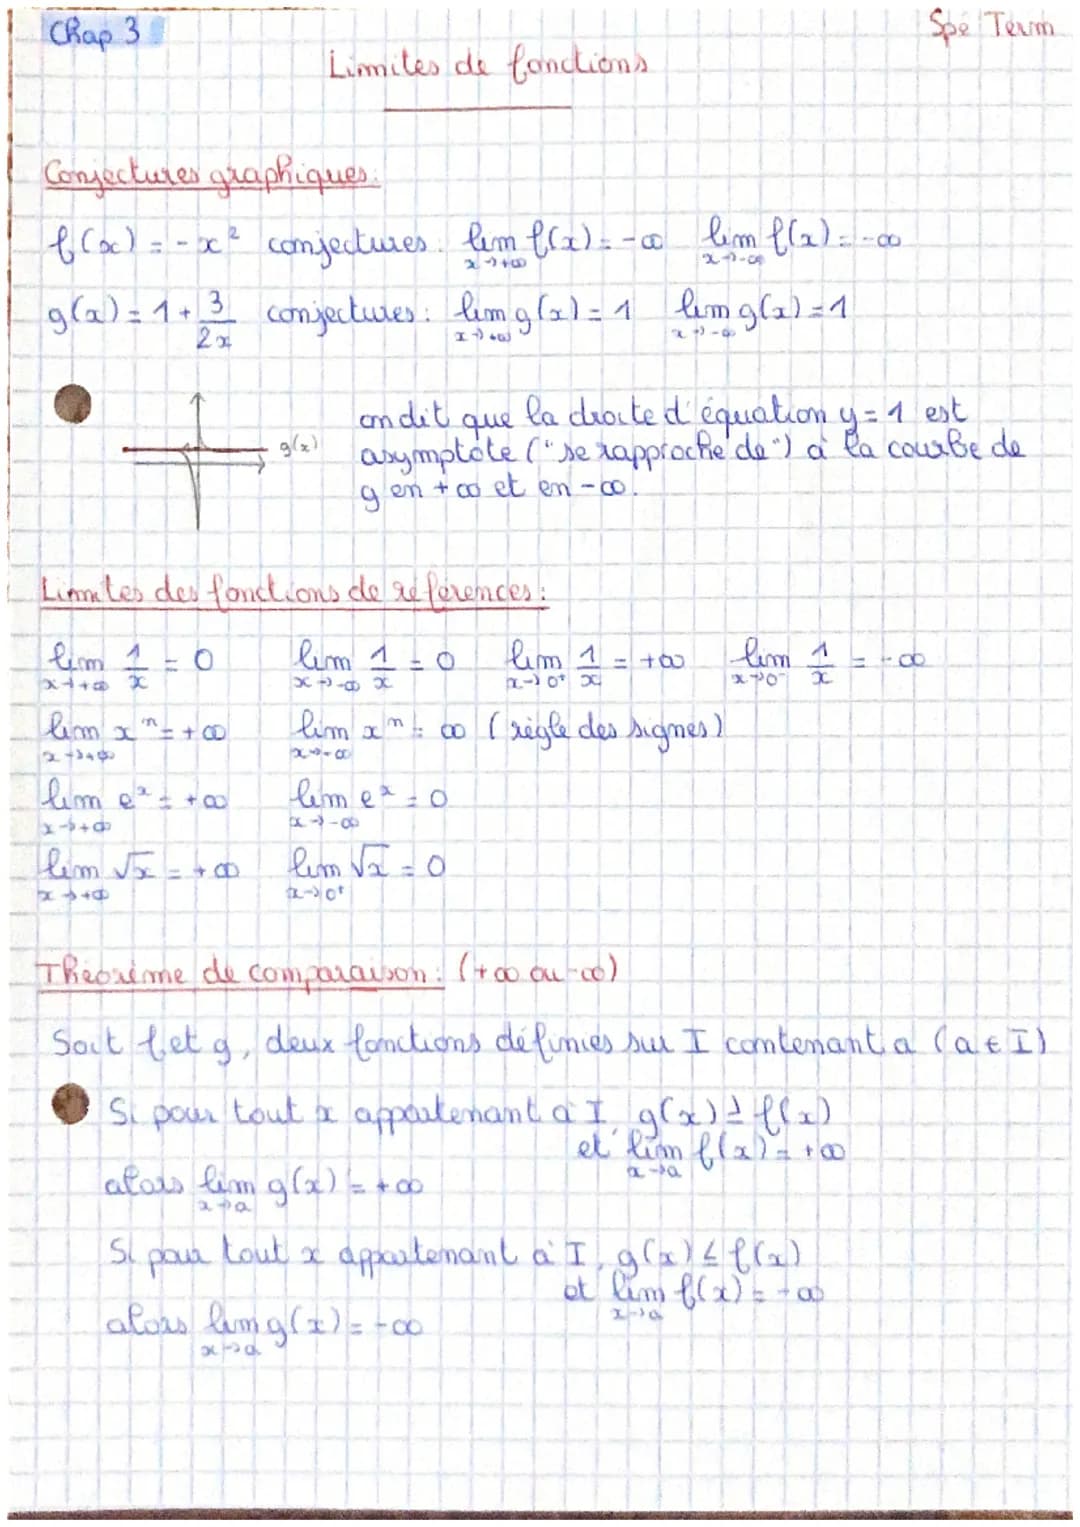 Chap 3
Spé Term
Limites de fonctions
Conjectures graphiques:
f(x) = -x² conjectures: lim f(x) = -∞ lim f(x) = -∞
x→+∞ x→-∞
g(x) = 1 + 3/2x conjectures: lim g(x) = 1 lim g(x) = 1
x→+∞ x→-∞
g(x)
on dit que la droite d'équation y = 1 est
asymptote ("se rapproche de") à la courbe de
g en +∞ et en -∞.
Limites des fonctions de références:
lim 1/x = 0 lim 1/x = 0 lim 1/x = +∞ lim 1/x = -∞
x→+∞ x→-∞ x→0⁺ x→0⁻
lim xⁿ = +∞ lim xⁿ = ∞ (règle des signes)
x→+∞ x→-∞
lim eˣ = +∞ lim eˣ = 0
x→+∞ x→-∞
lim √x = +∞ lim √x = 0
x→+∞ x→0⁺
Théorème de comparaison: (+∞ ou -∞)
Soit f et g, deux fonctions définies sur I contenant a (a ∈ I)
Si pour tout x appartenant à I, g(x) ≥ f(x)
et lim f(x) = +∞
x→a
alors lim g(x) = +∞
x→a
Si pour tout x appartenant à I, g(x) ≤ f(x)
et lim f(x) = -∞
x→a
alors lim g(x) = -∞
x→a